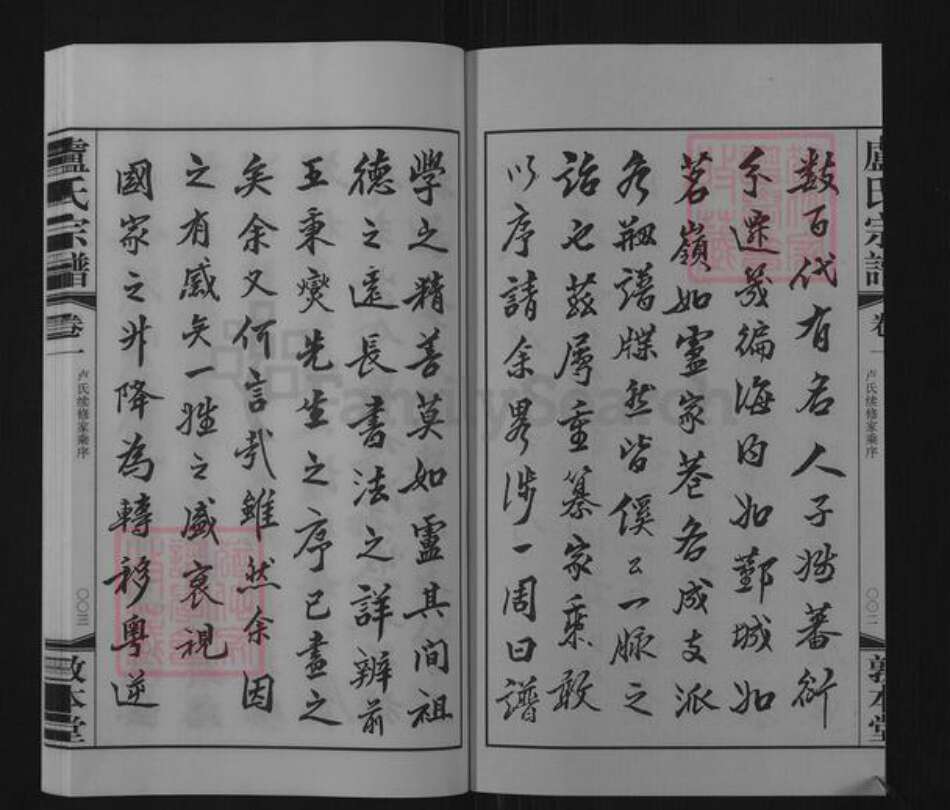 盧氏宗譜
卷一
卢氏续修家乘序
〇〇二
敦本堂
數百代有名人子姓蕃衍
今遷幾徧海内如鄞城如
茗嶺如靈家巷各成支派
各刱譜牒然皆俁公一脉之
詒也茲屬重纂家乘敢
以序請余畧涉一周曰譜
學之精善莫如盧其間祖
德之遠長書法之詳辨前
王秉燮先生之序已盡之
矣余又何言哉雖然余因
之有感矣一姓之盛衰視
國家之升降為轉移粵逆
盧氏宗譜
卷一
卢氏续修家乘序
〇〇三
敦本堂
FamilySearch